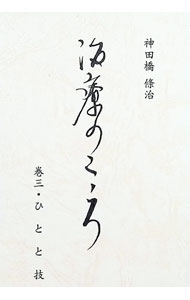 神田橋 條治
治療のこゝろ
巻三・ひとと技